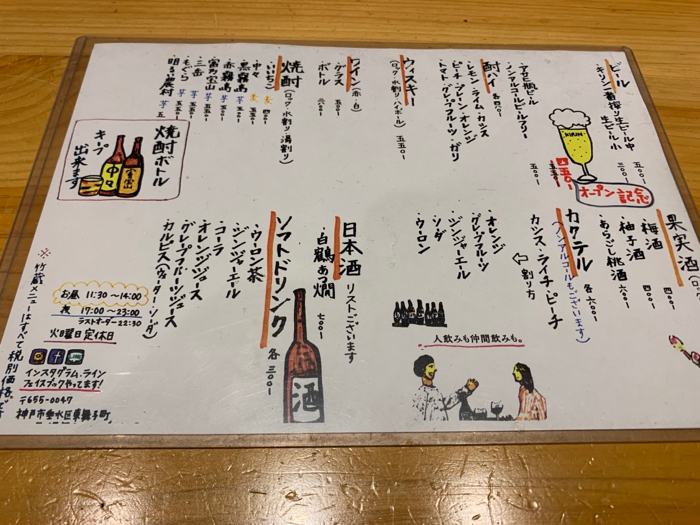 ビール
・キリン一番搾り生ビール中 五五〇-
生ビール小 三〇〇-
・アサヒ瓶ビール 五五〇-
・ノンアルコールビールフリー 五五〇-
四五〇-
KIRIN
オープン記念
酎ハイ 各四〇〇-
・レモン・ライム・カッス
・ピーチ・プレーン・オレンジ
・トマト・グレープフルーツ・ガリ
ウィスキー
(ロック・水割り・ハイボール) 五五〇-
ワイン(赤・白)
・グラス 五五〇-
・ボトル
焼酎(ロック・水割り・湯割り)
・いいちこ 麦 四〇〇-
・中々 麦
・黒霧島 芋
・赤霧島 芋
・富乃宝山 芋 五五〇-
・三岳 芋 五五〇-
・もぐら 芋 五五〇-
・明るい農村 芋 五
焼酎ボトル
キープ
出来ます
中々
果実酒(ロッ
・梅酒 四〇〇-
・柚子酒 四〇〇-
・あらごし桃酒 六〇〇-
カクテル 各六〇〇-
(ノンアルコールもございます)
カシス・ライチ・ピーチ
⇦ 割り方
・オレンジ
・グレープフルーツ
・ジンジャーエール
・ソーダ
・ウーロン
人飲みも仲間飲みも。
日本酒 リストございます
・白鶴あつ燗 七〇〇-
酒
ソフトドリンク 各三〇〇-
・ウーロン茶
・ジンジャーエール
・コーラ
・オレンジジュース
・グレープフルーツジュース
・カルピス(ウォーター・ソーダ)
お昼 11:30～14:00
夜 17:00～23:00
ラストオーダー22:30
火曜日定休日
インスタグラム、ライン
フェイスブックやってます!
〒655-0047
神戸市垂水区東舞子町
※竹蔵メニューはすべて税別価格